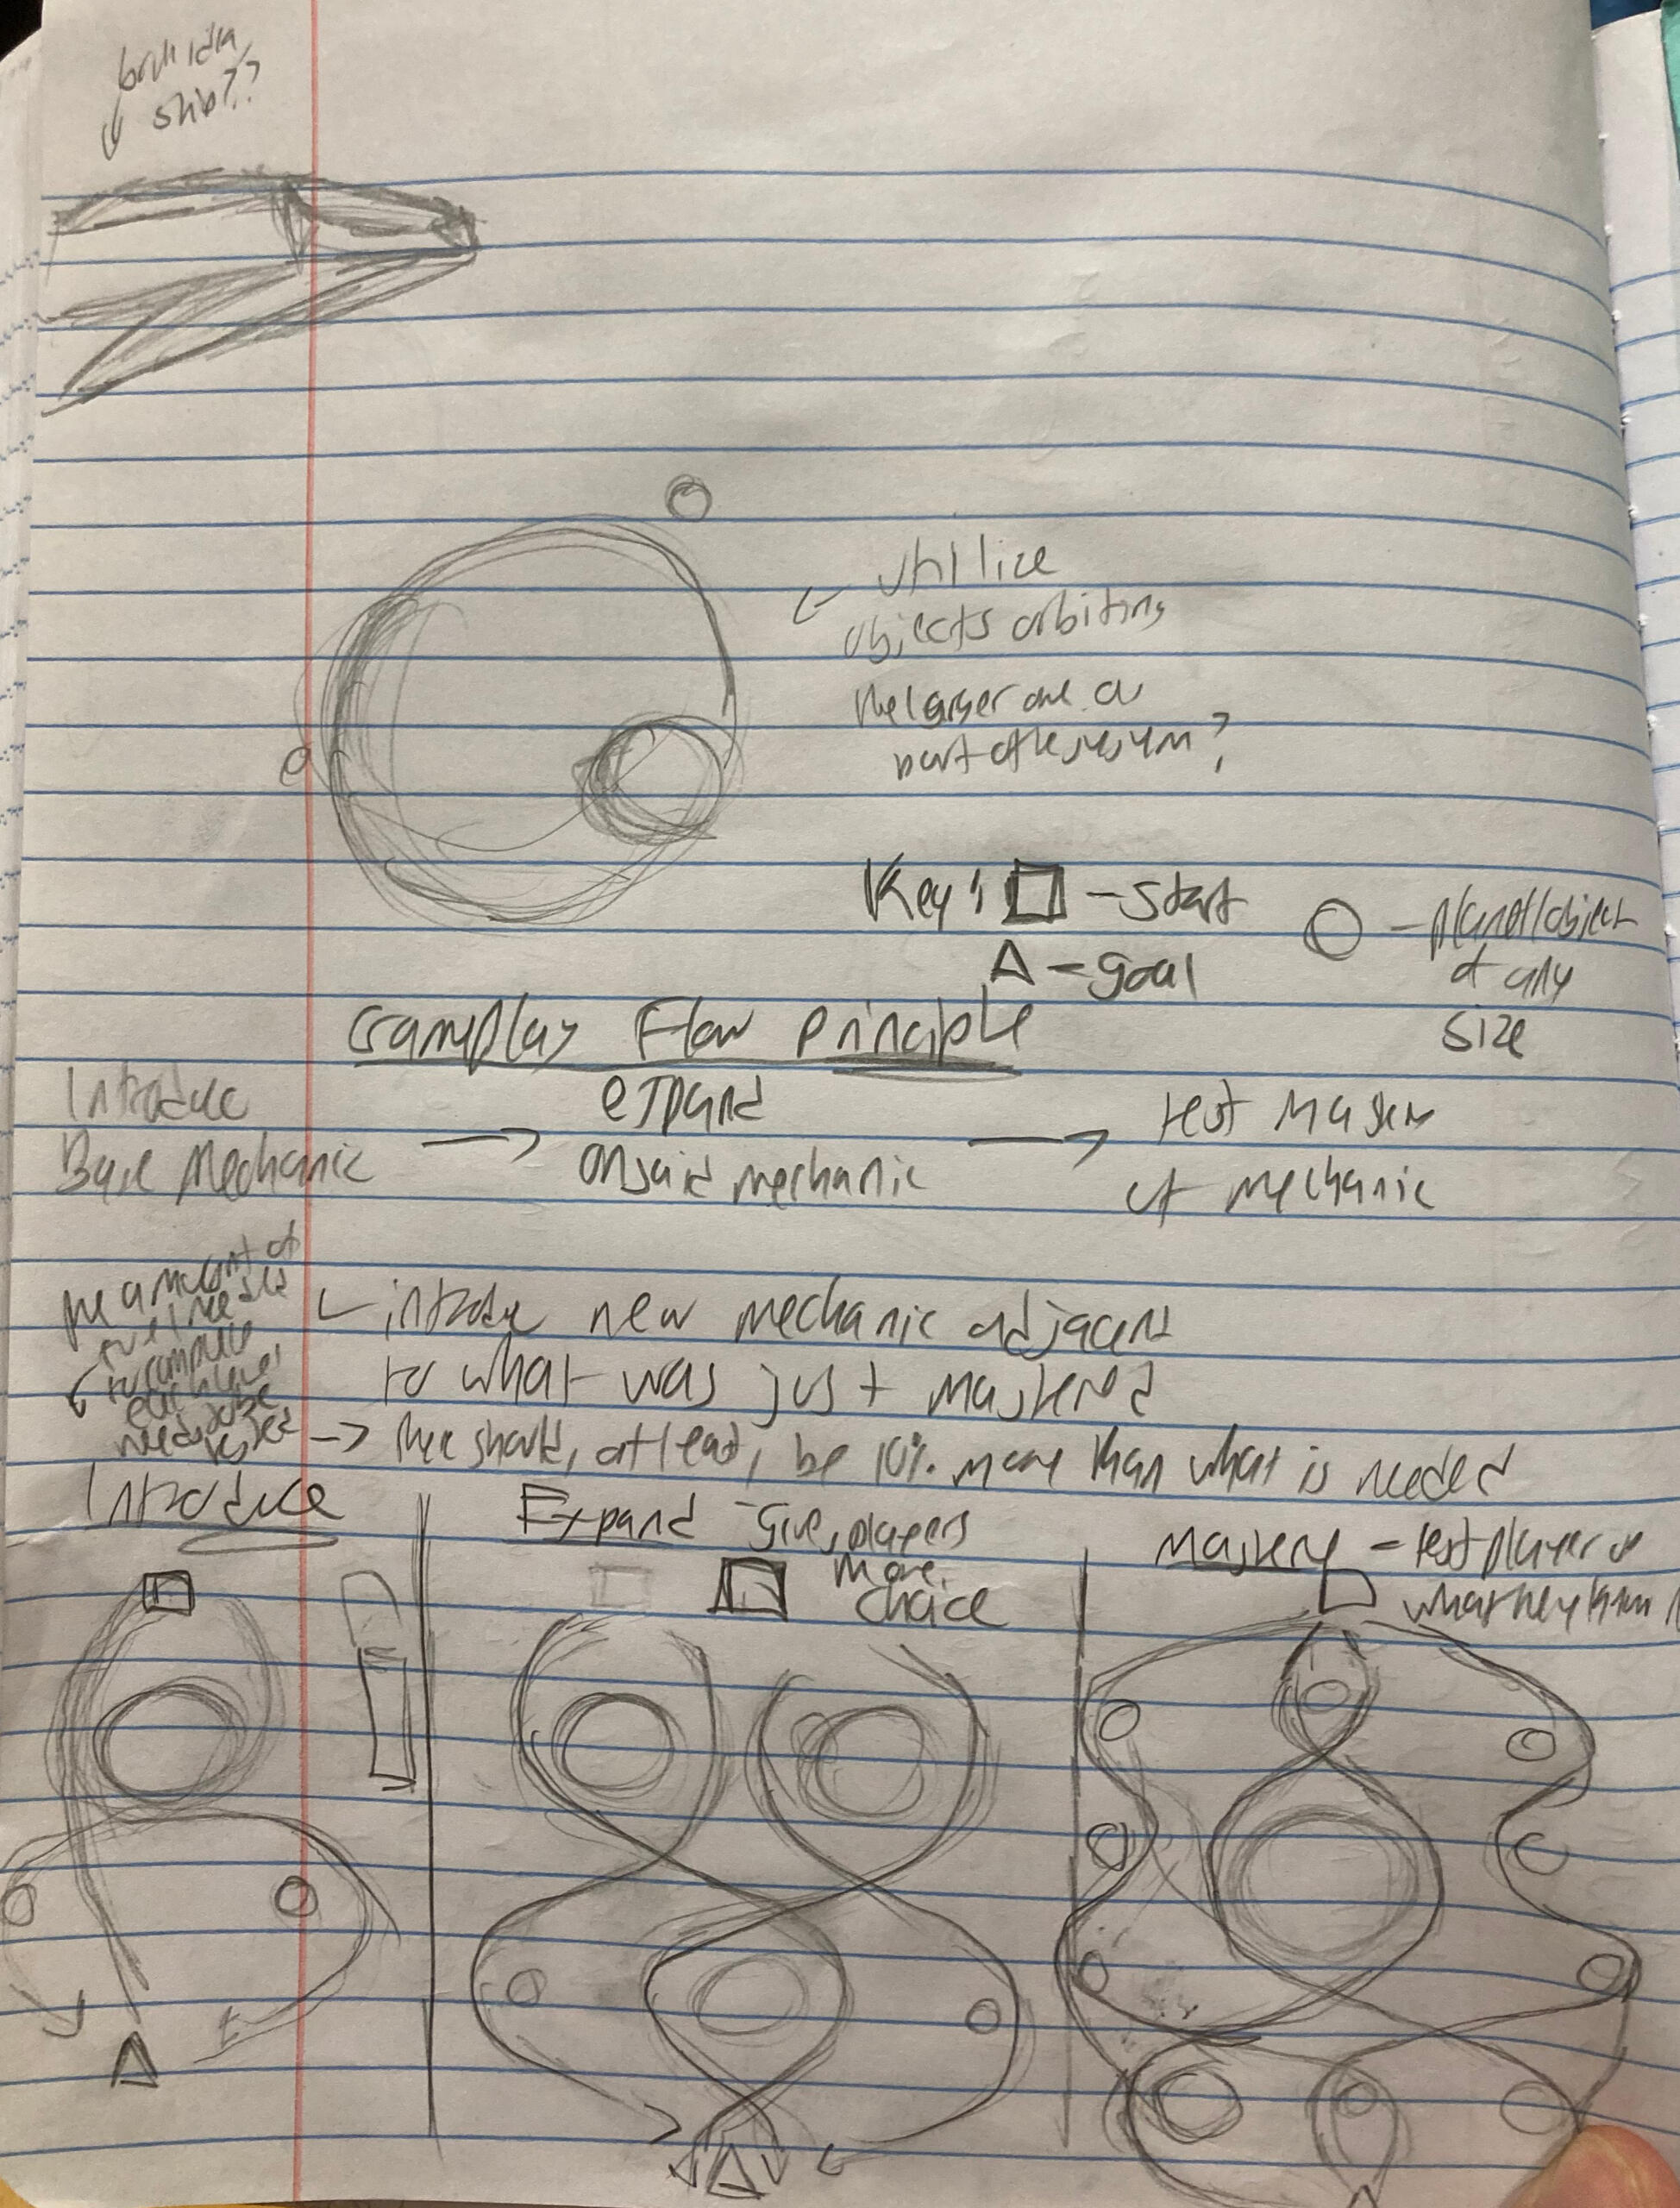 ship??
utilice
objects orbiting
the larger one a
part of the system?
Key: - Start
- planet/object
- goal
of any
size
Gameplay Flow Principle
Introduce
expand
test mastery
Base Mechanic
on said mechanic
of mechanic
the amount of
fuel needed
to complete
each level
needs to be
tested
introduce new mechanic adjacent
to what was just mastered
there should, at least, be 10% more than what is needed
Introduce
Expand - give players
more
choice
Mastery - test player on
what they know